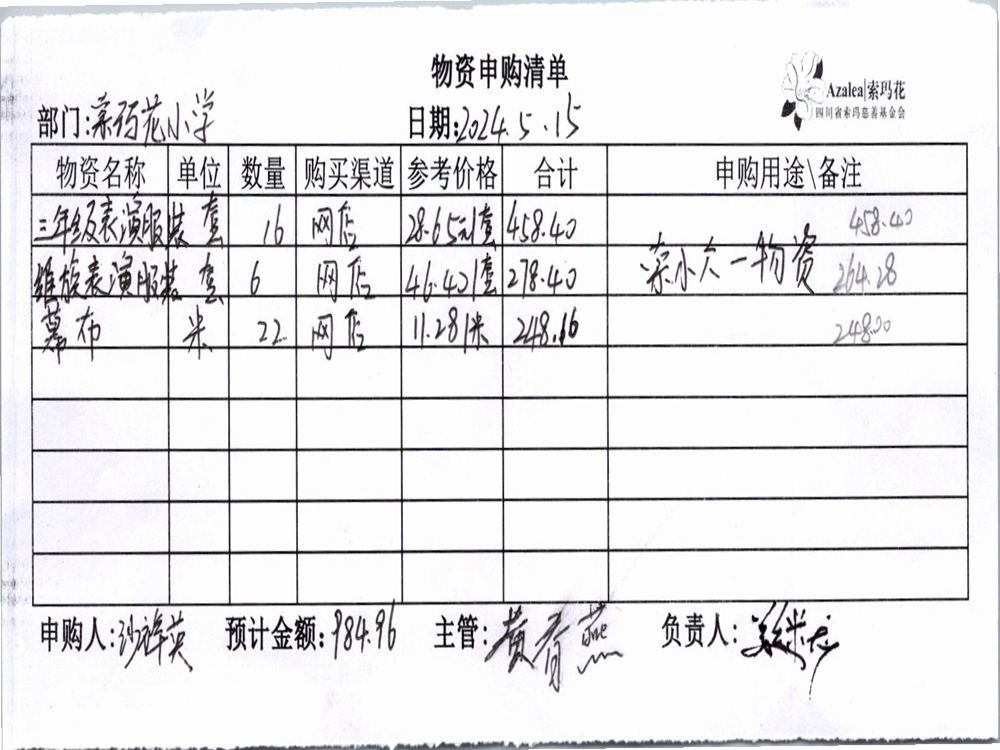 物资申购清单
Azalea|索玛花
四川省索玛慈善基金会
部门:索玛花小学 日期:2024.5.15
物资名称 单位 数量 购买渠道 参考价格 合计 申购用途\备注
三年级表演服装 套 16 网店 28.65元/套 458.40 458.40
维族表演服装 套 6 网店 46.40/套 278.40 索小六一物资 264.28
幕布 米 22 网店 11.28/米 248.16 248.00
申购人:沙祥英 预计金额:984.96 主管:黄春燕 负责人: